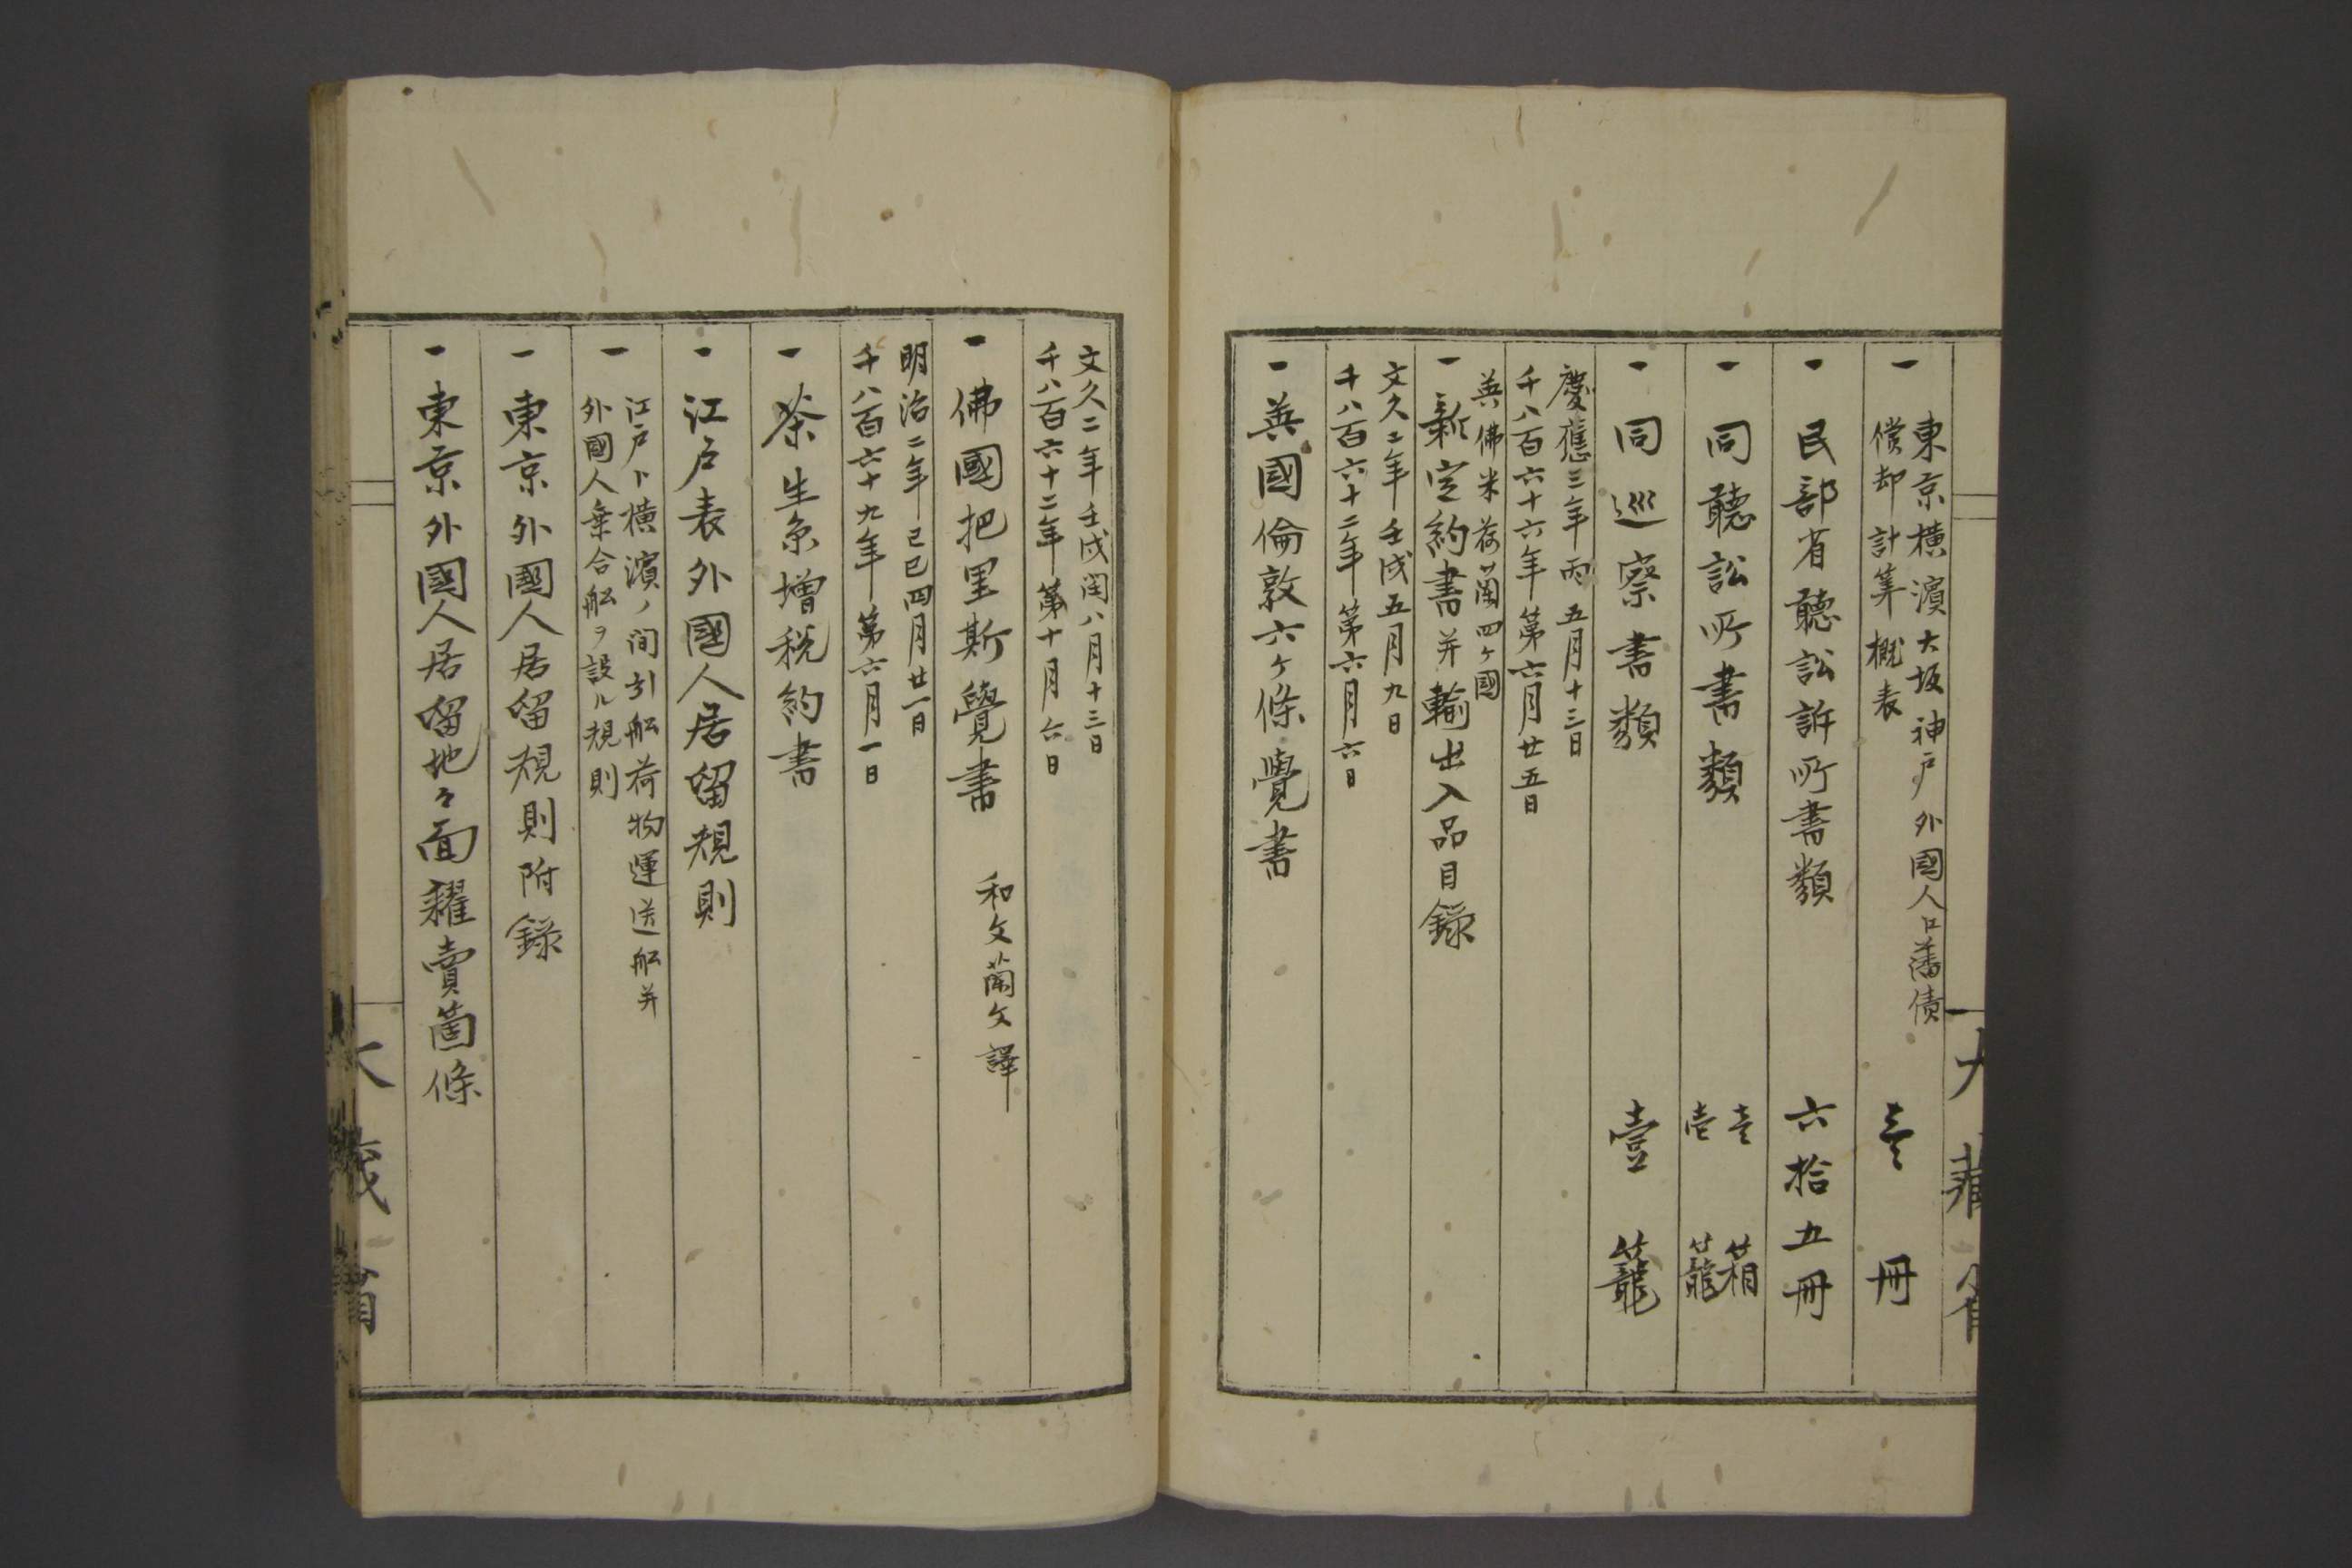 一 東京横濱大坂神戸外國人口藩債
償却計算概表 壱冊
一 民部省聽訟訴所書類 六拾五冊
一 同聽訟所書類 壱箱
壱籠
一 同巡察書類 壹籠
慶應三年丙 五月十三日
千八百六十六年第六月廿五日
英佛米荷蘭四ヶ國
一 新定約書并輸出入品目録
文久二年壬戌五月九日
千八百六十二年第六月六日
一 英國倫敦六ヶ條覺書
大藏省
文久二年壬戌閏八月十三日
千八百六十二年第十月六日
一 佛國把里斯覺書 和文蘭文譯
明治二年己巳四月廿一日
千八百六十九年第六月一日
一 茶生糸増税約書
一 江戸表外國人居留規則
一 江戸ト横濱ノ間引船荷物運送船并
外國人乗合船ヲ設ル規則
一 東京外國人居留規則附録
一 東京外國人居留地々面糶賣箇條
大蔵省